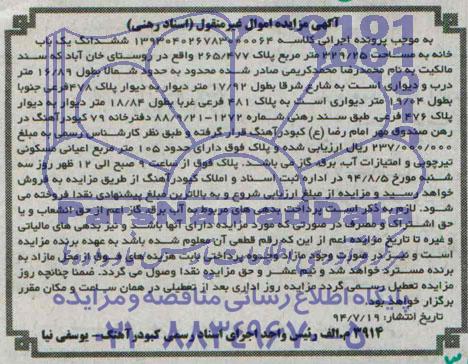 آگهی مزایده اموال غیرمنقول (اسناد رهنی)
به موجب پرونده اجرائی کلاسه ۱۳۹۳۰۴۰۲۶۷۸۳۰۰۰۰۶۴ ششدانگ یک باب
خانه به مساحت ۳۲۹/۲۵ متر مربع پلاک ۲۶۵/۴۷۷ واقع در روستای خان آباد که سند
مالکیت به نام محمدرضا محمدکریمی صادر شده محدود به حدود شمالا بطول ۱۶/۸۹ متر
درب و دیواری است به شارع شرقا بطول ۱۷/۹۲ متر دیوار به دیوار پلاک ۴۷۸ فرعی جنوبا
بطول ۱۹/۰۴ متر دیواری است به پلاک ۴۸۱ فرعی غربا بطول ۱۸/۸۴ متر دیوار به دیوار
پلاک ۴۷۶ فرعی. طبق سند رهنی شماره ۱۲۷۲-۸۸/۷/۲۱ دفترخانه ۷۹ کبودرآهنگ در
رهن صندوق مهر امام رضا (ع) کبودرآهنگ قرار گرفته و طبق نظر کارشناس رسمی به مبلغ
۲۳۷/۰۰۰/۰۰۰ ریال ارزیابی شده و پلاک فوق دارای حدود ۱۰۵ متر مربع اعیانی مسکونی
تیرچوبی و امتیازات آب، برق، گاز می باشد. پلاک فوق از ساعت ۹ صبح الی ۱۲ ظهر روز سه
شنبه مورخ ۹۴/۸/۵ در اداره ثبت اسناد و املاک کبودرآهنگ از طریق مزایده به فروش
خواهد رسید و مزایده از مبلغ ارزیابی شروع و به بالاترین مبلغ پیشنهادی نقدا فروخته می
شود. لازم به ذکر است پرداخت بدهی های مربوط به آب، برق، گاز اعم از حق انشعاب و یا
حق اشتراک و مصرف در صورتی که مورد مزایده دارای آنها باشد و نیز بدهی های مالیاتی
و غیره تا تاریخ مزایده اعم از این که رقم قطعی آن معلوم شده باشد به عهده برنده مزایده
است و نیز در صورت وجود مازاد وجوه پرداختی بابت هزینه های فوق از محل مازاد به
برنده مسترد خواهد شد و نیم عشر و حق مزایده نقدا وصول می گردد. ضمنا چنانچه روز
مزایده تعطیل رسمی گردد مزایده روز اداری بعد از تعطیلی در همان ساعت و مکان مقرر
برگزار خواهد بود.
تاریخ انتشار: ۹۴/۷/۱۹
۳۹۱۴ م.الف رئیس واحد اجرای اسناد رسمی کبودرآهنگ - یوسفی نیا
پایگاه اطلاع رسانی مناقصه و مزایده